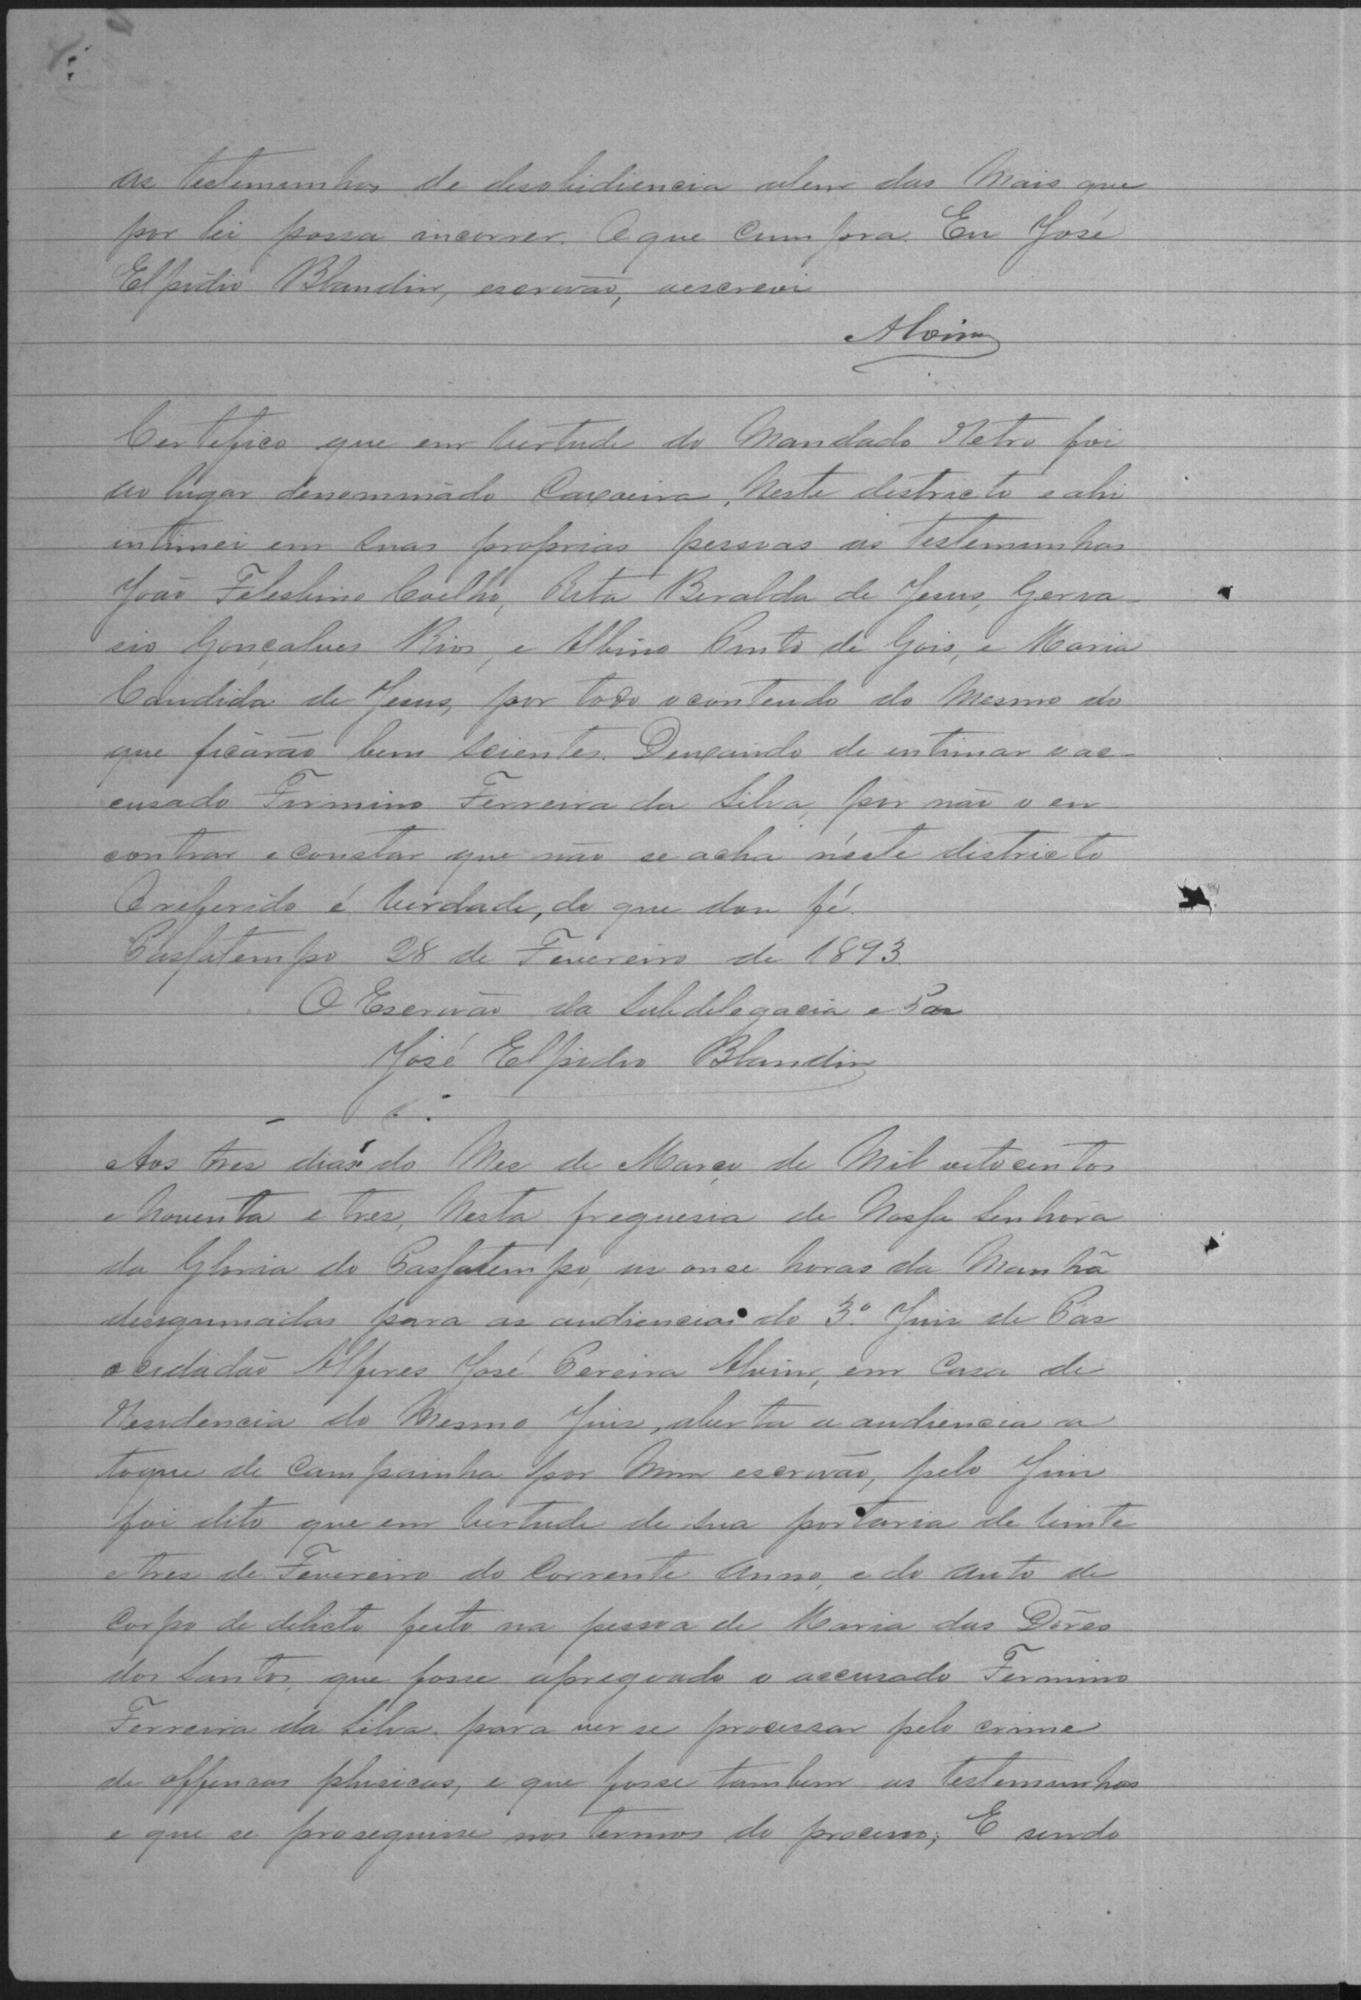 as testemunhas de desobidiencia alem das Mais que
por lei possa incorrer. O que Cumpra. Eu José
Elpidio Blandin, escrivão, o escrevi
Alvim
Certefico que em Vertude do Mandado Retro foi
ao lugar denominádo Caxoeira, Neste destricto e ahi
intimei em suas proprias pessoas as testemunhas
João Felesbino Coelho, Rita Beralda de Jesus, Gerva-
sio Gonçalves Rios, e Albino Pinto de Gois, e Maria
Candida de Jesus, por todo o contendo do Mesmo do
que ficárão bem scientes. Deixando de intimar o ac-
cusado Firmino Ferreira da Silva, por não o en-
contrar e constar que não se acha néste districto
O referido é Verdade, do que dou fé.
Passatempo 28 de Fevereiro de 1893.
O Escrivão da Subdelegacia e Paz
José Elpidio Blandin
Aos tres dias do Mez de Março de Mil oitocentos
e Noventa e tres, Nesta freguesia de Nossa Senhóra
da Gloria do Passatempo, as onse horas da Manhã
desiguinadas para as audiencias do 3º Juiz de Paz
o cidadão Alferes José Pereira Alvim, em Casa de
Residencia do Mesmo Juiz, aberta a audiencia a
toque de Campainha por Mim escrivão, pelo Juiz
foi dito que em Vertude de sua portaria de Vinte
e tres de Fevereiro do Corrente Anno, e do Auto de
Corpo de delicto feito na pessoa de Maria das Dôres
dos Santos, que fosse apregoado o accusado Fermino
Ferreira da Silva, para ver se processar pelo crime
de offensas phisicas, e que fosse tambem as testemunhas
e que se proseguisse nos termos do processo; E sendo